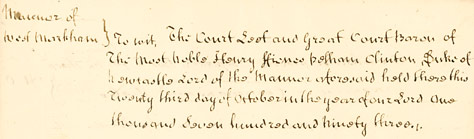 Mannor of
West Markham } To wit, The Court Leet and Great Court Baron of
The Most Noble Henry ffienes Pelham Clinton, Duke of
Newcastle Lord of the Mannor aforesaid held there this
Twenty third day of October in the year of our Lord One
thousand Seven hundred and Ninety three.,